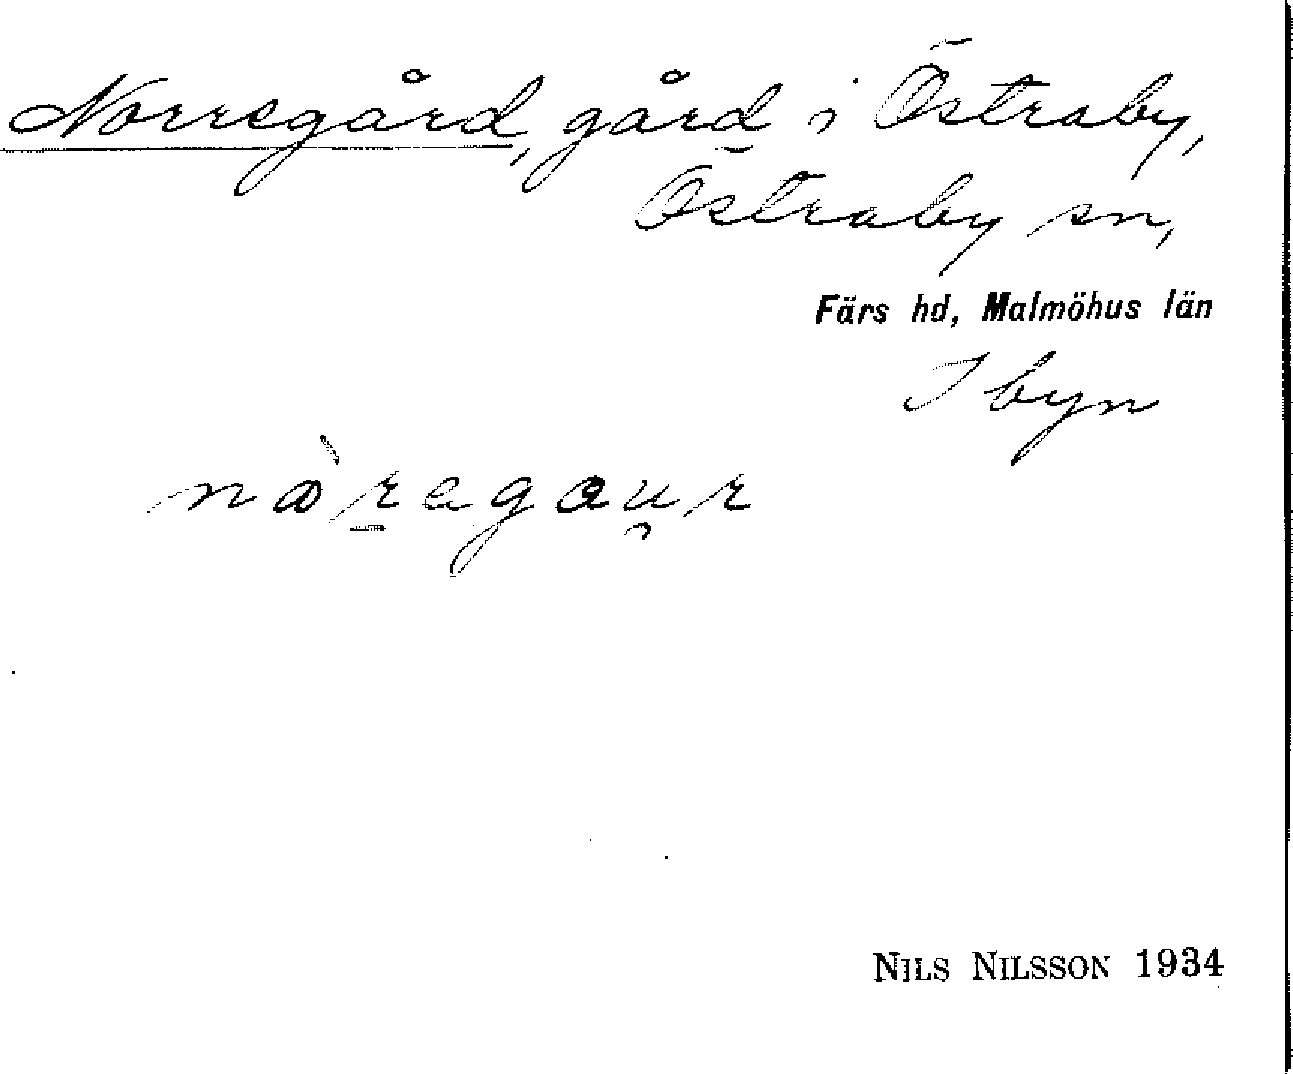 Norregård, gård i Östraby,
Östraby sn,
Färs hd, Malmöhus län
I byn
NILS NILSSON 1934